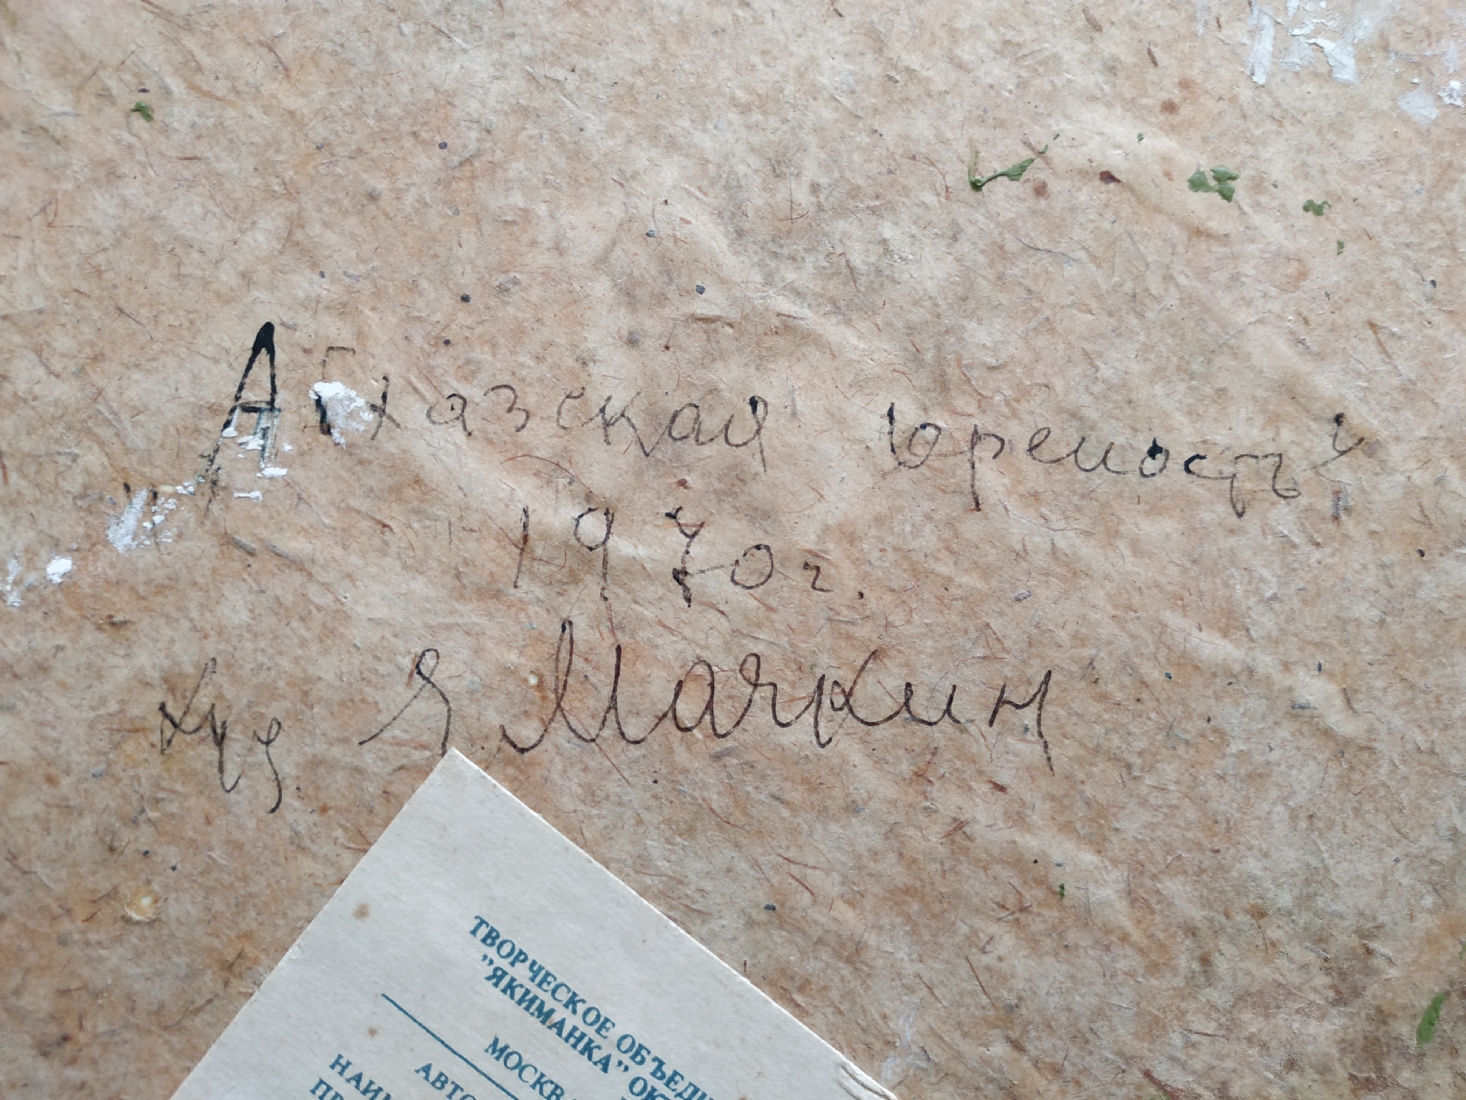 "Абхазская крепость"
1970 г.
худ Я Мачкин
ТВОРЧЕСКОЕ ОБЪЕДИ
"ЯКИМАНКА" ОК
МОСКВА
АВТО
НАИ
ПР